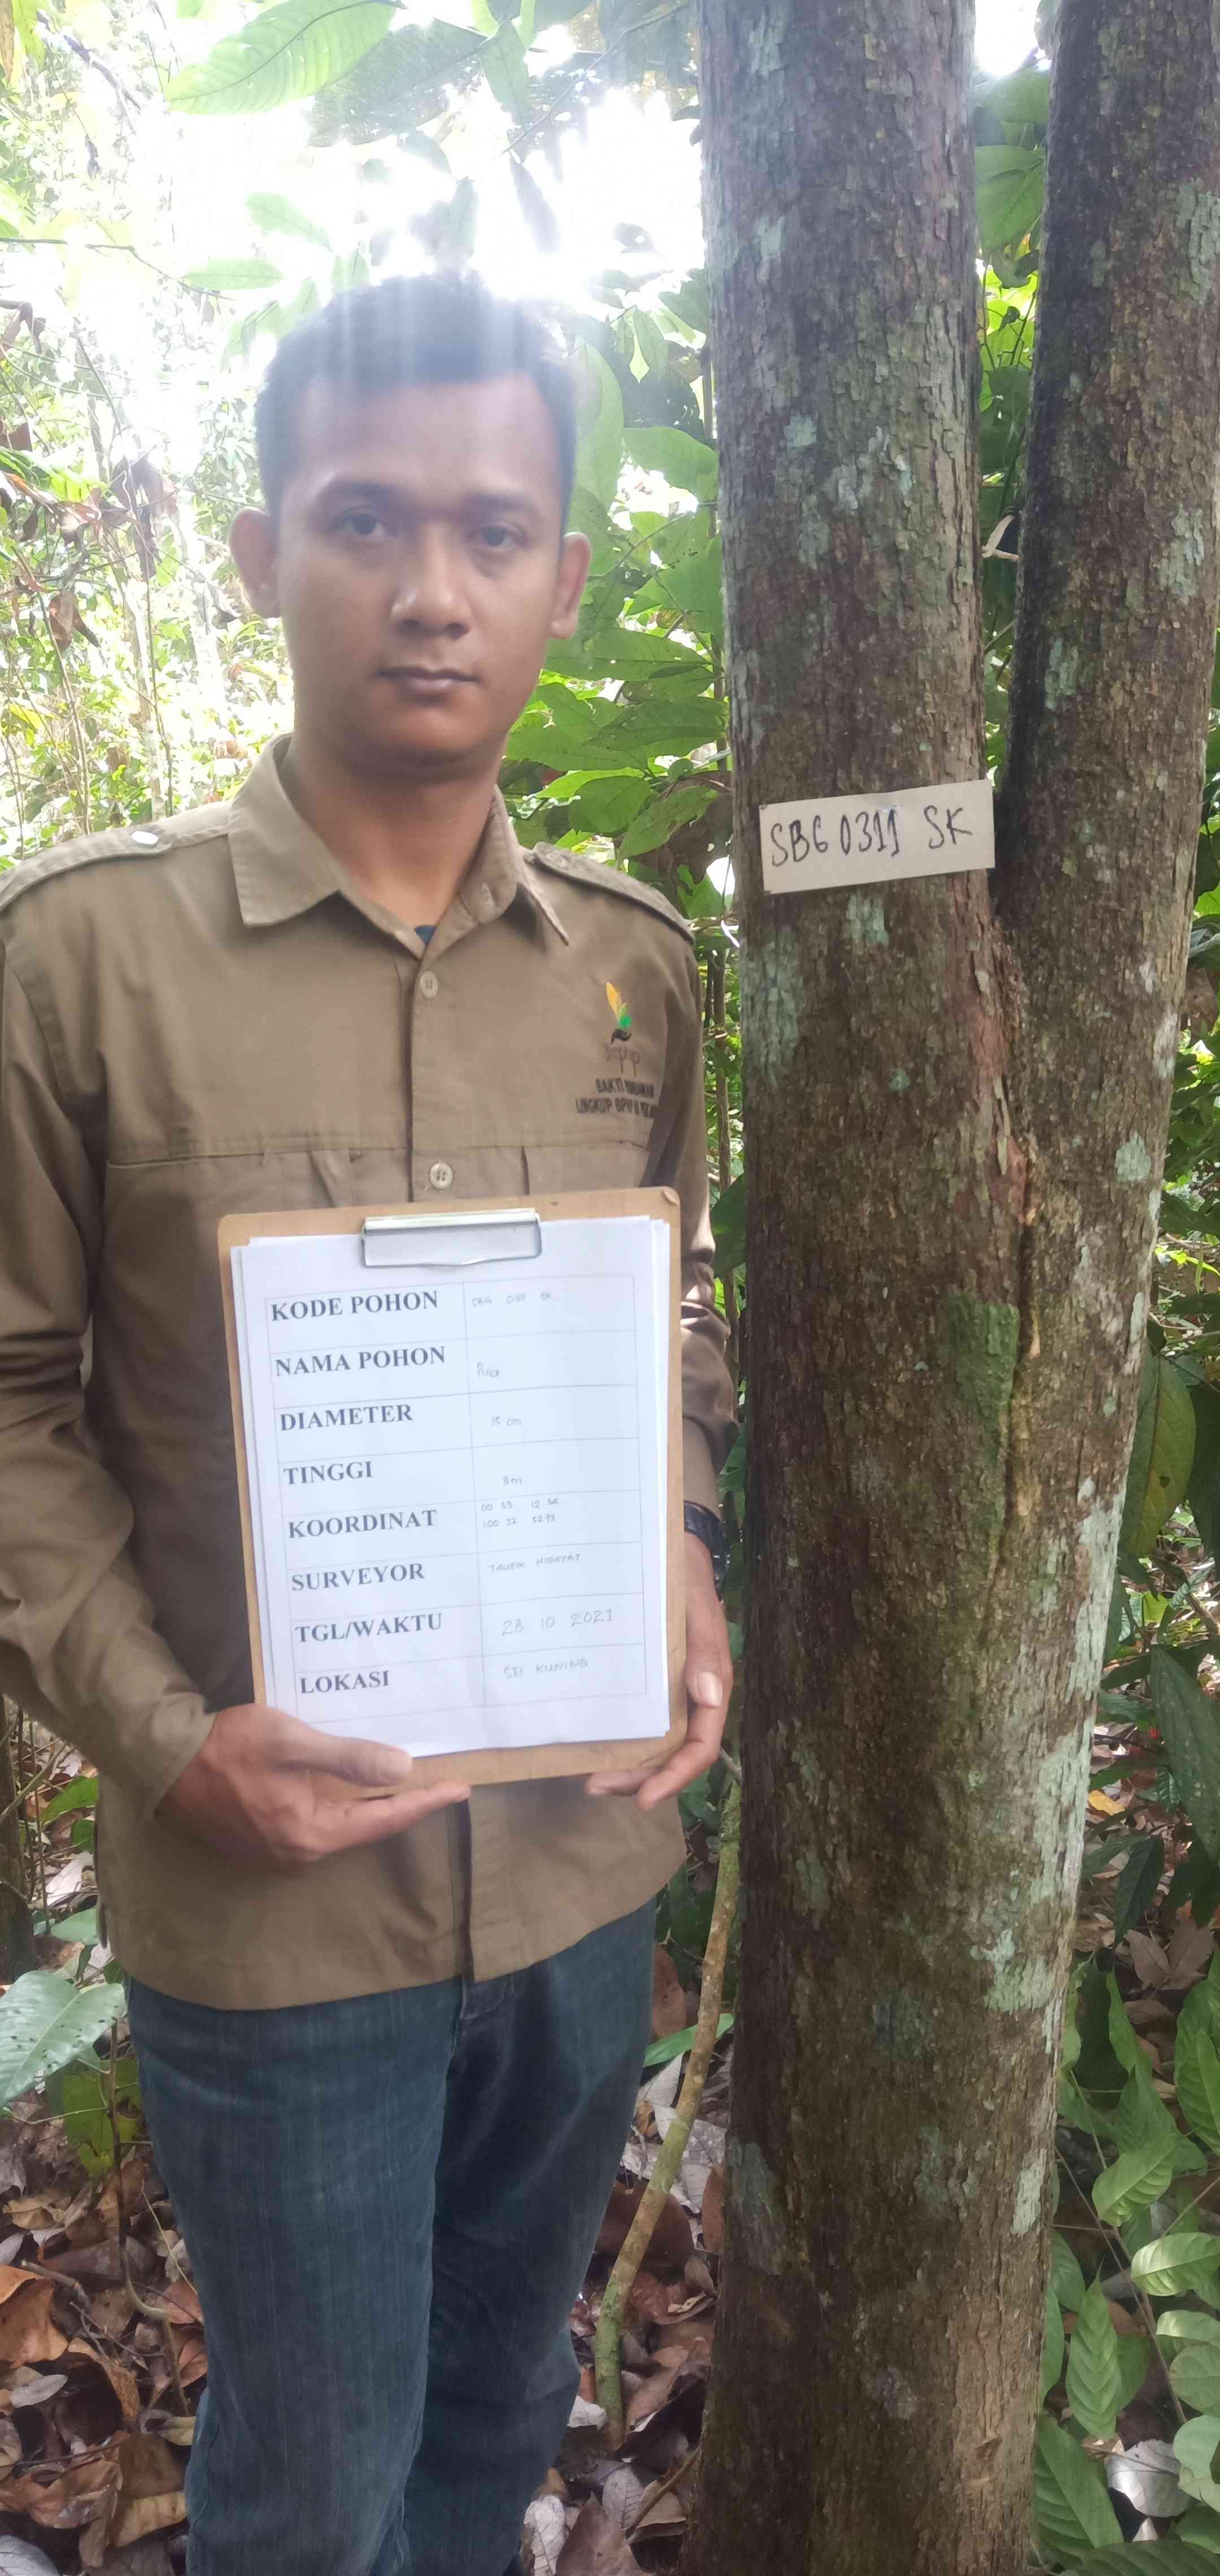 SBG 0311 SK
BAKTI RIMBAWAN
LINGKUP BPHP
KODE POHON
NAMA POHON
DIAMETER 15 cm
TINGGI 8 m
KOORDINAT 00 33 12 34
100 32 52 78
SURVEYOR TAUFIK HIDAYAT
TGL/WAKTU 28 10 2021
LOKASI SEI KUNING